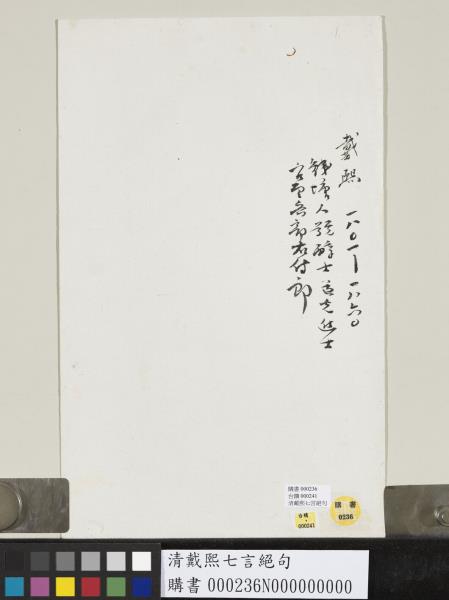 戴熙 一八〇一－一八六〇
錢塘人號醇士道光進士
官至兵部右侍郎
購書 000236
台購 000241
清戴熙七言絕句
購書
0236
台購
000241
清戴熙七言絕句
購書 000236N000000000